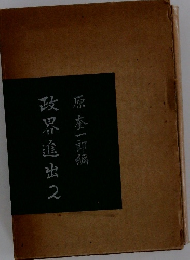 原奎一郎編
政界進出2